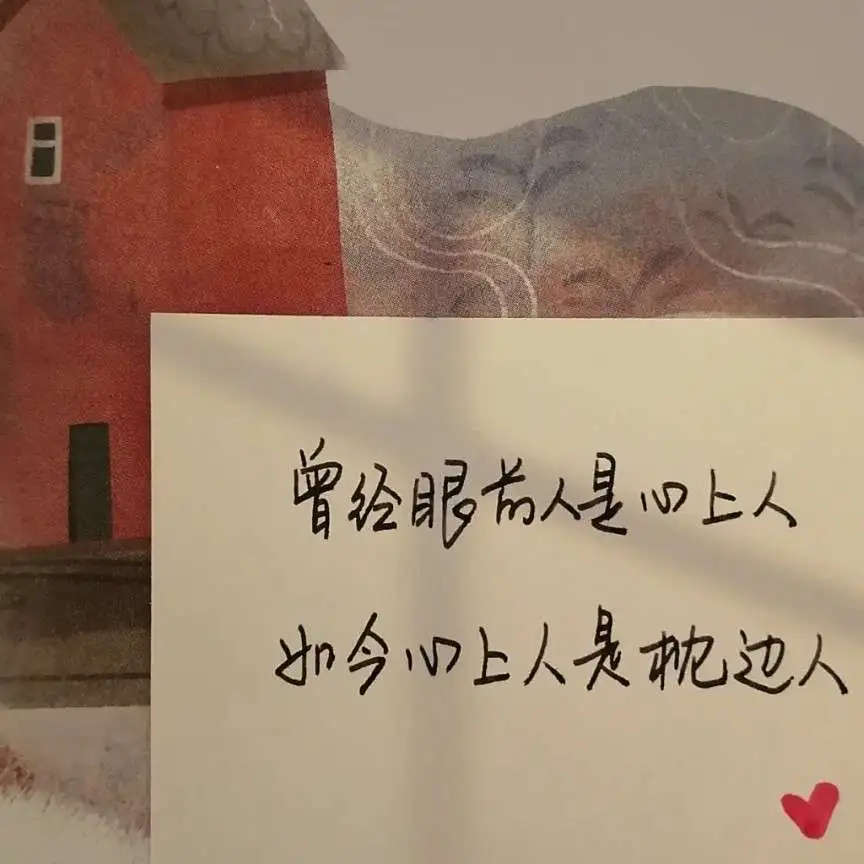 曾经眼前人是心上人
如今心上人是枕边人